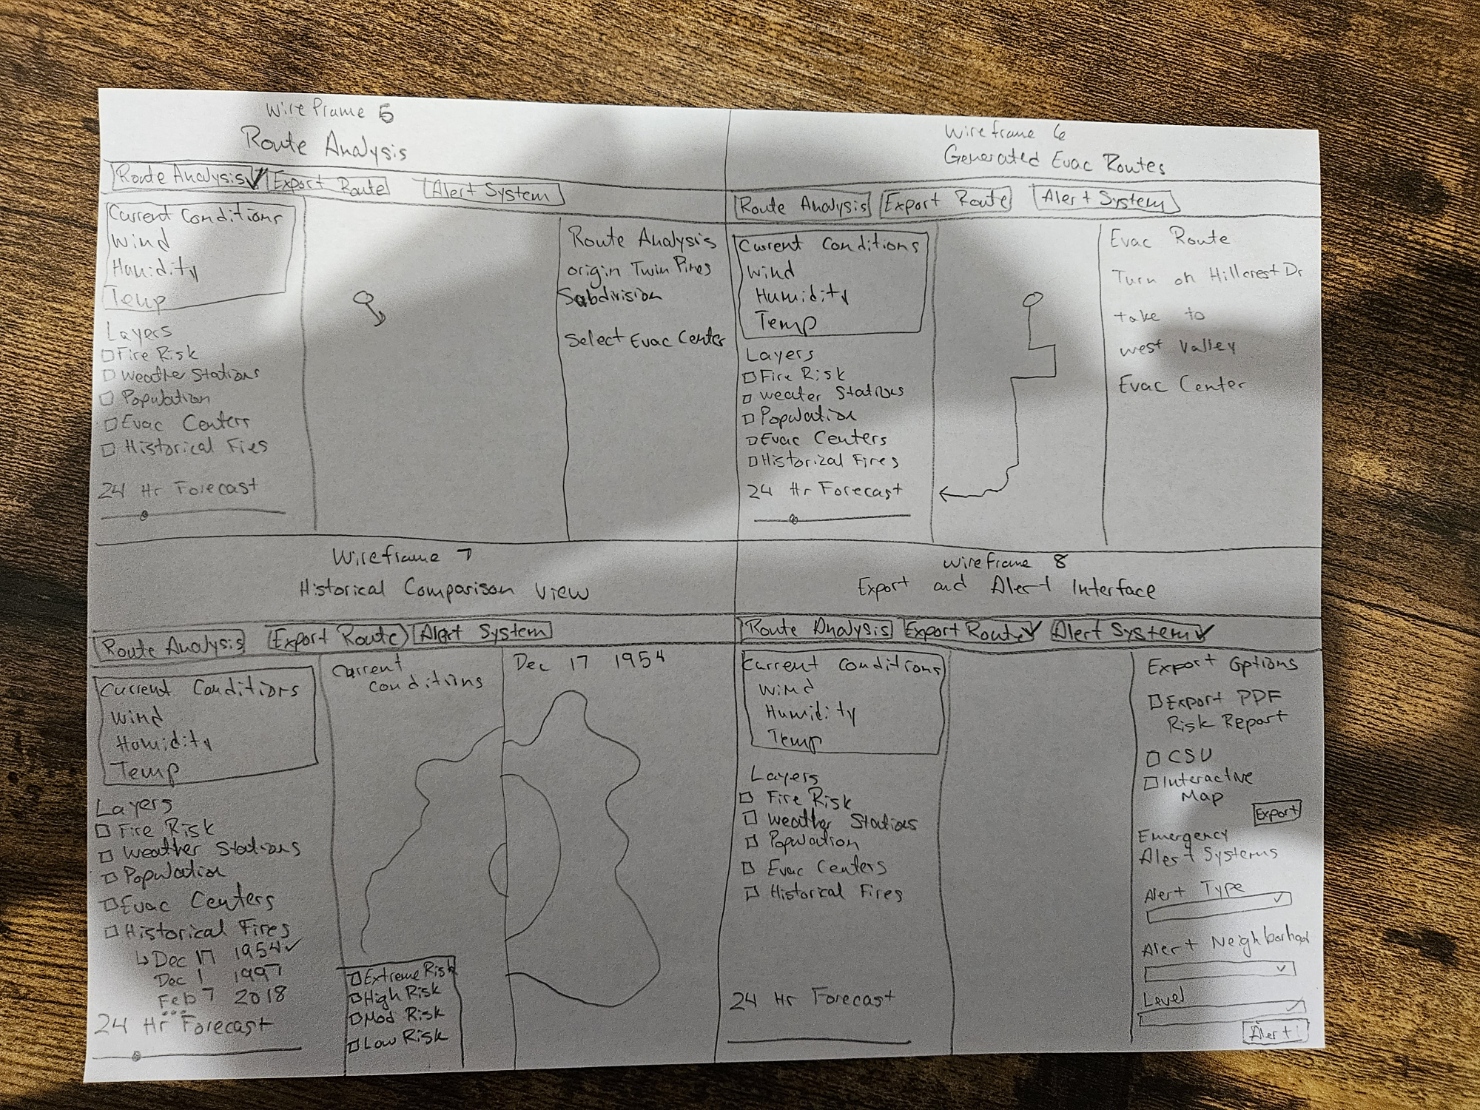 Wireframe 5
Route Analysis
Route Analysis ✓ Export Route Alert System
Current Conditions
Wind
Humidity
Temp
Layers
□ Fire Risk
□ Weather Stations
□ Population
□ Evac Centers
□ Historical Fires
24 Hr Forecast
Route Analysis
origin Twin Pines
Subdivision
Select Evac Center
Wireframe 6
Generated Evac Routes
Route Analysis Export Route Alert System
Current Conditions
Wind
Humidity
Temp
Layers
□ Fire Risk
□ Weater Stations
□ Population
□ Evac Centers
□ Historical Fires
24 Hr Forecast
Evac Route
Turn on Hillcrest Dr
take to
west Valley
Evac Center
Wireframe 7
Historical Comparison View
Route Analysis Export Route Alert System
Current Conditions
Wind
Humidity
Temp
Layers
□ Fire Risk
□ Weather Stations
□ Population
□ Evac Centers
□ Historical Fires
↳ Dec 17 1954 ✓
Dec 1 1997
Feb 7 2018
...
24 Hr Forecast
Current
Conditions
□ Extreme Risk
□ High Risk
□ Mod Risk
□ Low Risk
Dec 17 1954
Wireframe 8
Export and Alert Interface
Route Analysis Export Route ✓ Alert System ✓
Current Conditions
Wind
Humidity
Temp
Layers
□ Fire Risk
□ Weather Stations
□ Population
□ Evac Centers
□ Historical Fires
24 Hr Forecast
Export Options
□ Export PDF
Risk Report
□ CSV
□ Interactive
Map
Export
Emergency
Alert Systems
Alert Type
Alert Neighborhood
Level
Alert